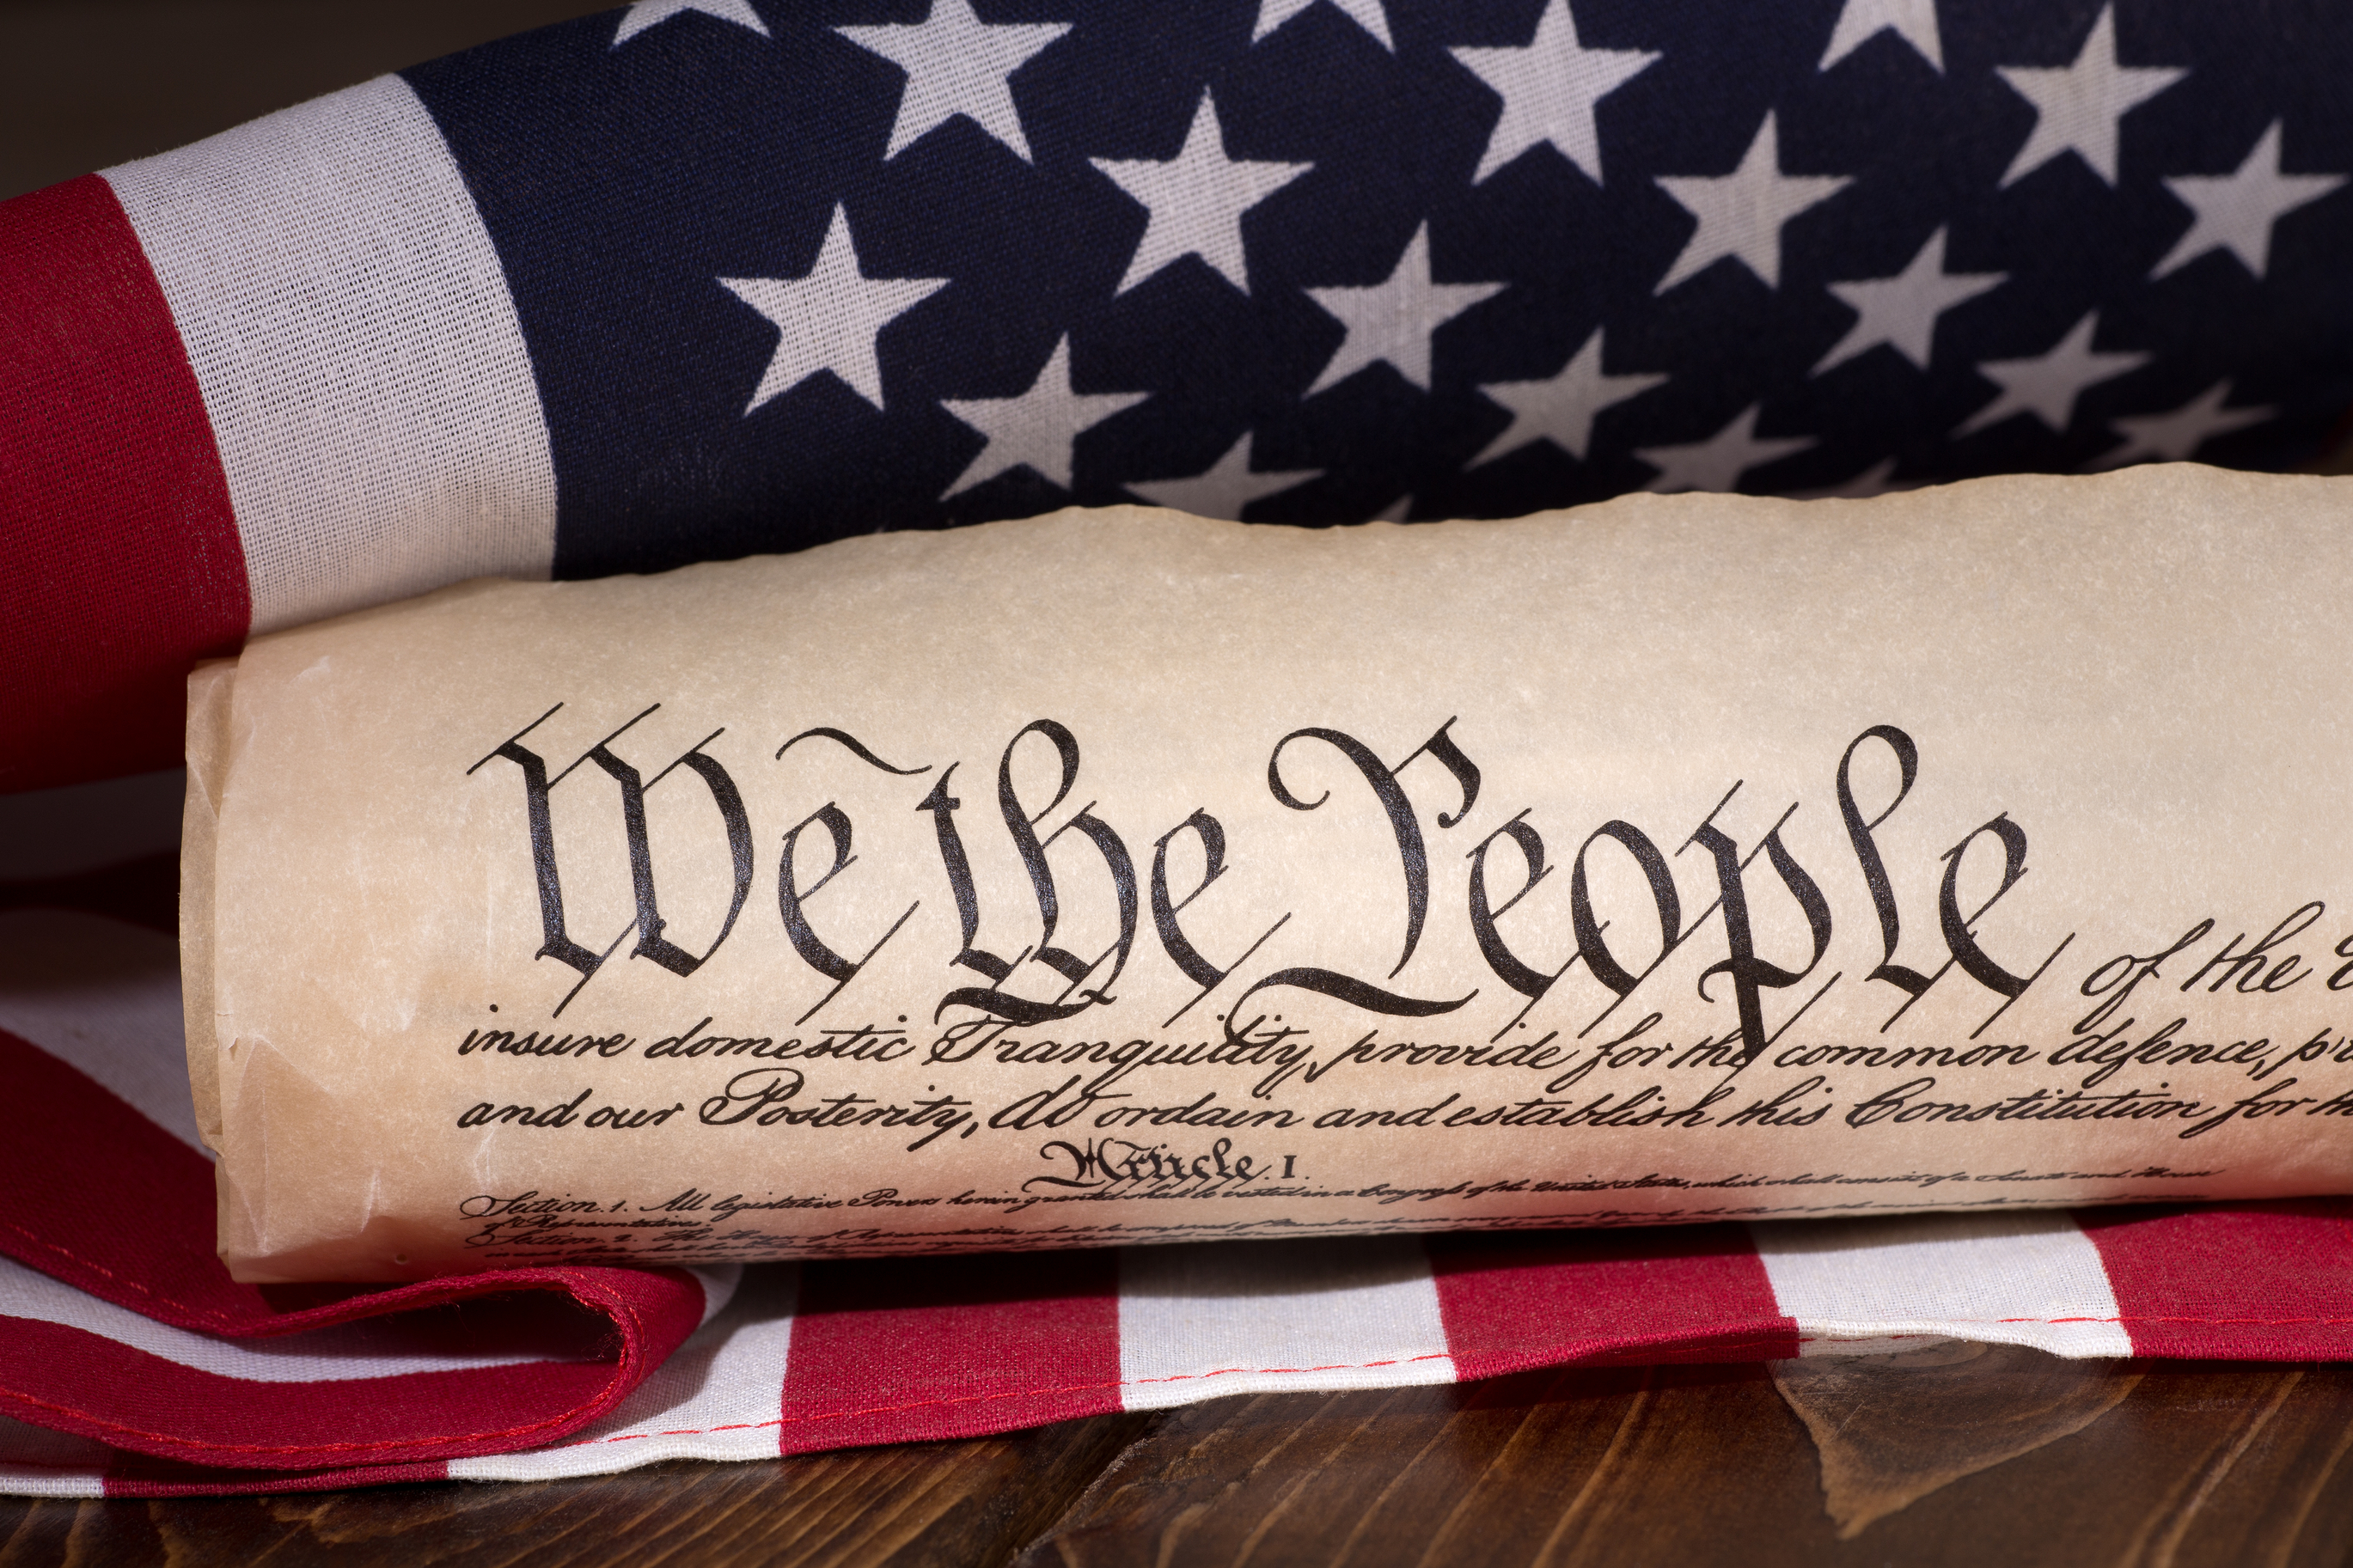 We the People of the
insure domestic Tranquility, provide for the common defence,
and our Posterity, do ordain and establish this Constitution for
Article. I.
Section. 1. All legislative Powers herein granted shall be vested in a Congress of the United States, which shall consist of a Senate and House
of Representatives.
Section. 2. The House of Representatives shall be composed of